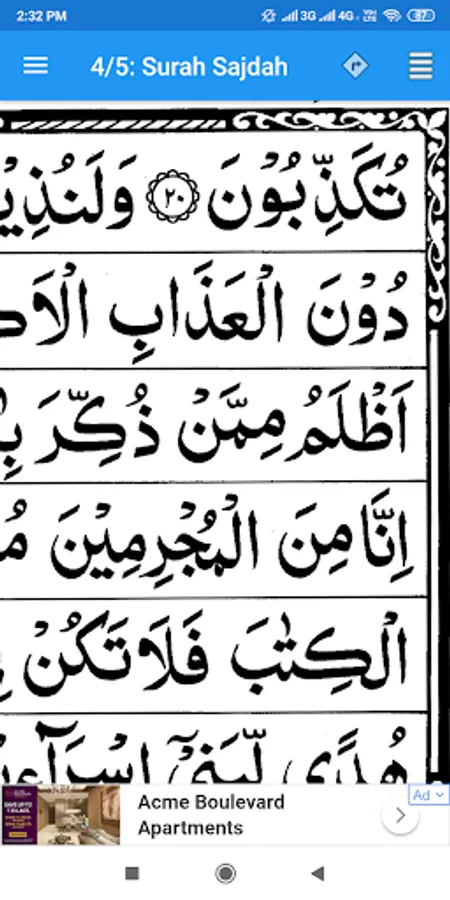 2:32 PM 3G 4G VoLTE 87
4/5: Surah Sajdah
تُكَذِّبُوۡنَ ﴿۲۰﴾ وَلَنُذِيۡ
دُوۡنَ الۡعَذَابِ الۡاَ
اَظۡلَمُ مِمَّنۡ ذُكِّرَ بِاٰ
اِنَّا مِنَ الۡمُجۡرِمِيۡنَ مُ
الۡكِتٰبَ فَلَا تَكُنۡ
هُدًى لِّبَنِىۡۤ اِسۡرَآءِ
Acme Boulevard
Apartments
Ad